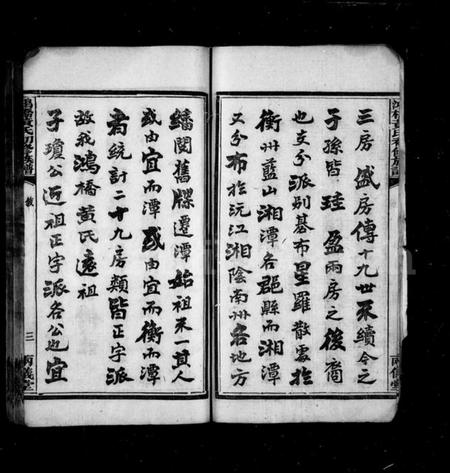 三房盛房傳十九世不續今之
子孫皆珪盈兩房之後裔
也支分派別基布星羅散處於
衡州藍山湘潭各郡縣而湘潭
又分布於沅江湘陰南州各地方
繙閱舊牒遷潭始祖不一其人
或由宜而潭或由宜而衡而潭
者統計二十九房類皆正字派
故我鴻橋黃氏遠祖
子瓊公近祖正字派各公迺宜
三
兩儀堂